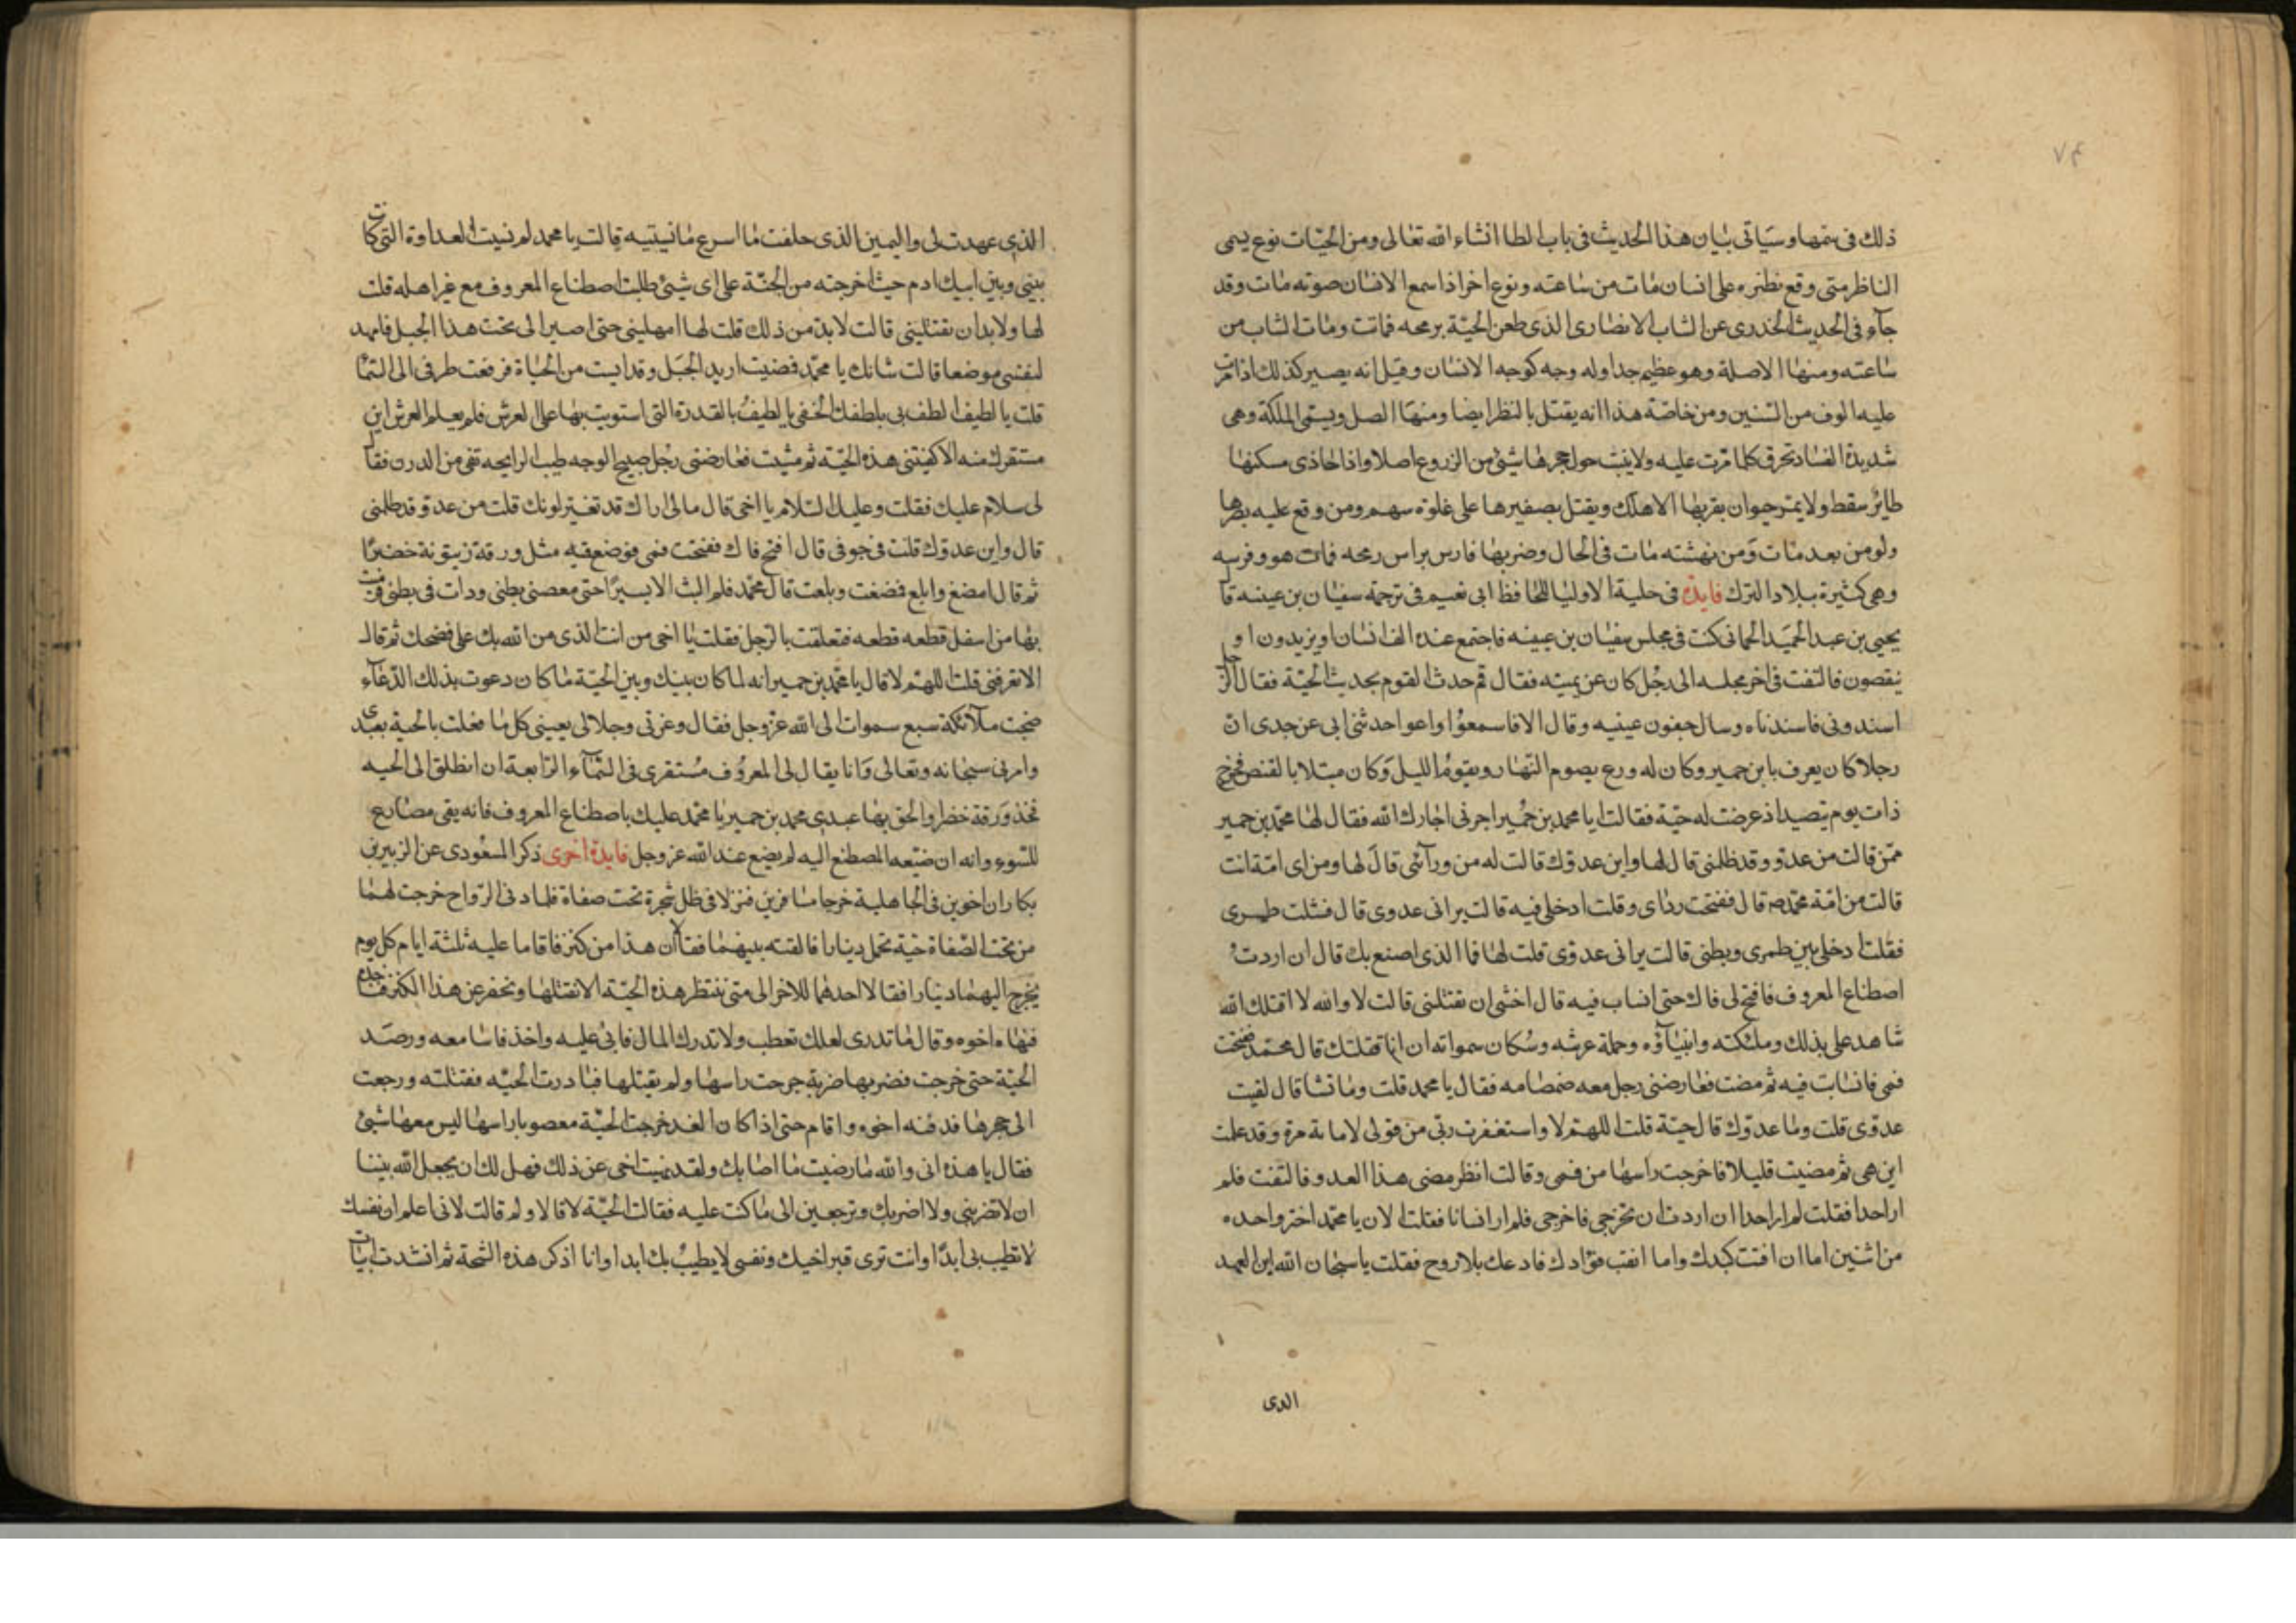 ٧٤
ذلك فى سمها وسياتى بيان هذا الحديث فى باب الطا انشاء الله تعالى ومن الحيات نوع يسمى
الناظر متى وقع نظره على انسان مات من ساعته ونوع اخر اذا سمع الانسان صوته مات وقد
جآء فى الحديث الخدرى عن الشاب الانصارى الذى طعن الحية برمحه فماتت ومات الشاب من
ساعته ومنها الاصلة وهو عظيم جدا وله وجه كوجه الانسان وقيل انه يصير كذلك اذا مرت
عليه الوف من السنين ومن خاصة هذا انه يقتل بالنظر ايضا ومنها الصل ويسمى الملكة وهى
شديدة الفساد تحرق كلما مرت عليه ولا ينبت حول جحرها شئ من الزروع اصلا واذا حاذى مسكنها
طائر سقط ولا يمر حيوان بقربها الا هلك ويقتل بصفيرها على غلوة سهم ومن وقع عليه بصرها
ولو من بعد مات ومن نهشته مات فى الحال وضربها فارس براس رمحه فمات هو وفرسه
وهى كثيرة ببلاد الترك فايدة فى حلية الاوليا للحافظ ابى نعيم فى ترجمة سفيان بن عينه قال
يحيى بن عبد الحميد الحمانى كنت فى مجلس سفيان بن عيينه فاجتمع عنده الف انسان او يزيدون او
ينقصون فالتفت فى اخر مجلسه الى رجل كان عن يمينه فقال قم حدث القوم بحديث الحية فقال الرجل
اسندونى فاسندناه وسال جفون عينيه وقال الا فاسمعوا واعوا حدثنى ابى عن جدى ان
رجلا كان يعرف بابن حمير وكان له ورع يصوم النهار ويقوم الليل وكان مبتلا بالقنص فخرج
ذات يوم يتصيد اذ عرضت له حية فقالت ايا محمد بن حمير اجرنى اجارك الله فقال لها محمد بن حمير
ممن قالت من عدو وقد ظلمنى قال لها واين عدوك قالت له من ورآئى قال لها ومن اى امة انت
قالت من امة محمد صم قال ففتحت رداى وقلت ادخلى فيه قالت يرانى عدوى قال فشلت طمرى
فقلت ادخلى بين طمرى وبطنى قالت يرانى عدوى قلت لها فما الذى اصنع بك قال ان اردت
اصطناع المعروف فافتح لى فاك حتى انساب فيه قال اخشى ان تقتلنى قالت لا والله لا اقتلك الله
شاهد على بذلك وملئكته وانبيآؤه وحملة عرشه وسكان سمواته ان انا قتلتك قال محمد ففتحت
فمى فانسابت فيه ثم مضت فعارضنى رجل معه صمصامه فقال يا محمد قلت وما تشا قال لقيت
عدوى قلت وما عدوك قال حية قلت اللهم لا واستغفرت ربى من قولى لا ماية مرة وقد علمت
اين هى ثم مضيت قليلا فاخرجت راسها من فمى وقالت انظر مضى هذا العدو فالتفت فلم
ار احدا فقلت لم ار احدا ان اردت ان تخرجى فاخرجى فلم ار انسانا فقلت الان يا محمد اختر واحده
من اثنين اما ان افتت كبدك واما انقب فؤادك فادعك بلا روح فقلت يا سبحان الله اين العهد
الدى
الذى عهدت لى واليمين الذى حلفت ما اسرع مانيتيه قالت يا محمد لم نسيت العداوة التى كانت
بينى وبين ابيك ادم حيث اخرجته من الجنة على اى شيئ طلبت اصطناع المعروف مع غير اهله قلت
لها ولا بد ان تقتليني قالت لا بد من ذلك قلت لها امهلينى حتى اصير الى تحت هذا الجبل فامهد
لنفسى موضعا قالت شانك يا محمد فمضيت اريد الجبل وقد ايست من الحياة فرفعت طرفى الى السما
قلت يا لطيف الطف بى بلطفك الخفى يا لطيف بالقدرة التى استويت بها على العرش فلم يعلم العرش اين
مستقرك منه الا كفيتنى هذه الحية ثم مشيت فعارضنى رجل صبيح الوجه طيب الرايحه نقى من الدرن فقال
لى سلام عليك فقلت وعليك السلام يا اخى قال مالى اراك قد تغير لونك قلت من عدو قد ظلمنى
قال واين عدوك قلت فى جوفى قال افتح فاك ففتحت فمى فوضع فيه مثل ورقة زيتونة خضرا
ثم قال امضغ وابلع فمضغت وبلعت قال محمد فلم البث الا يسيرا حتى معصنى بطنى ودات فى بطنى فرميت
بها من اسفل قطعه قطعه فتعلقت بالرجل فقلت يا اخى من انت الذى من الله بك على فضحك ثم قال
الا تعرفنى قلت اللهم لا قال يا محمد بن حمير انه لما كان بينك وبين الحية ما كان دعوت بذلك الدعآء
ضجت ملآئكة سبع سموات الى الله عز وجل فقال وعزتى وجلالى بعينى كل ما فعلت بالحية بعبدى
وامرنى سبحانه وتعالى وانا يقال لى المعروف مستقرى فى السمآء الرابعة ان انطلق الى الحيه
فخذ ورقة خضرا والحق بها عبدى محمد بن حمير يا محمد عليك باصطناع المعروف فانه يقى مصارع
السوء وانه ان ضيعه المصطنع اليه لم يضع عند الله عز وجل فايدة اخرى ذكر المسعودى عن الزبير بن
بكار ان اخوين فى الجاهلية خرجا مسافرين فنزلا فى ظل شجرة تحت صفاة فلما دنى الرواح خرجت لهما
من تحت الصفاة حية تحمل دينارا فالقته بينهما فقالا ان هذا من كنز فاقاما عليه ثلثة ايام كل يوم
يخرج اليهما دينارا فقال احدهما للاخر الى متى ننتظر هذه الحية الا نقتلها ونحفر عن هذا الكنز فناخذه
فنهاه اخوه وقال ما تدرى لعلك تعطب ولا تدرك المال فابى عليه واخذ فاسا معه ورصد
الحية حتى خرجت فضربها ضربة جرحت راسها ولم يقتلها فبادرت الحيه فقتلته ورجعت
الى جحرها فدفنه اخوه واقام حتى اذا كان الغد خرجت الحية معصوبا راسها ليس معها شيئ
فقال يا هذه انى والله ما رضيت ما اصابك ولقد نهيت اخى عن ذلك فهل لك ان يجعل الله بيننا
ان لا تضرينى ولا اضربك وترجعين الى ما كنت عليه فقالت الحية لا قال ولم قالت لانى اعلم ان نفسك
لا تطيب بى ابدا وانت ترى قبر اخيك ونفسى لا يطيب بك ابدا وانا اذكر هذه الشجة ثم انشدت ابياتا